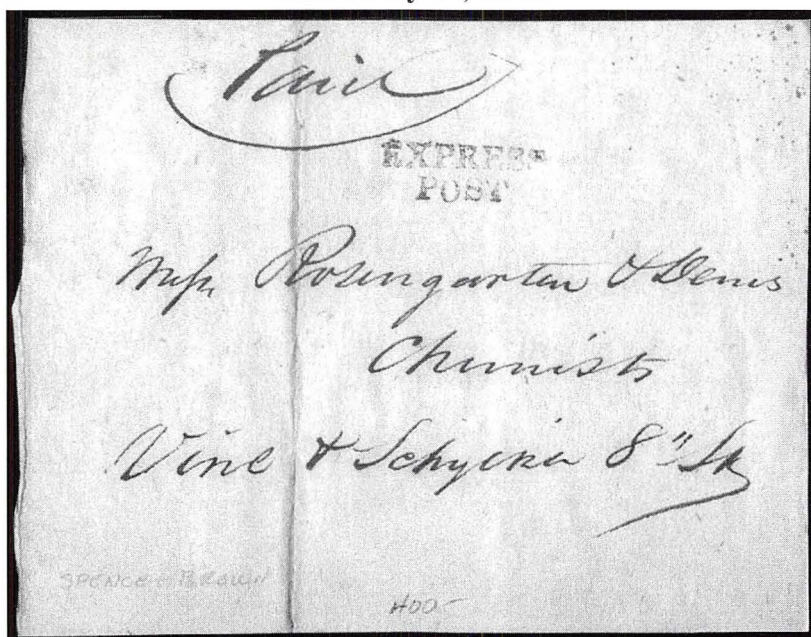 Paid
EXPRESS
POST
Mess. Rosengarten & Denis
Chemists
Vine & 8" St
SPENCE & BROWN
400-